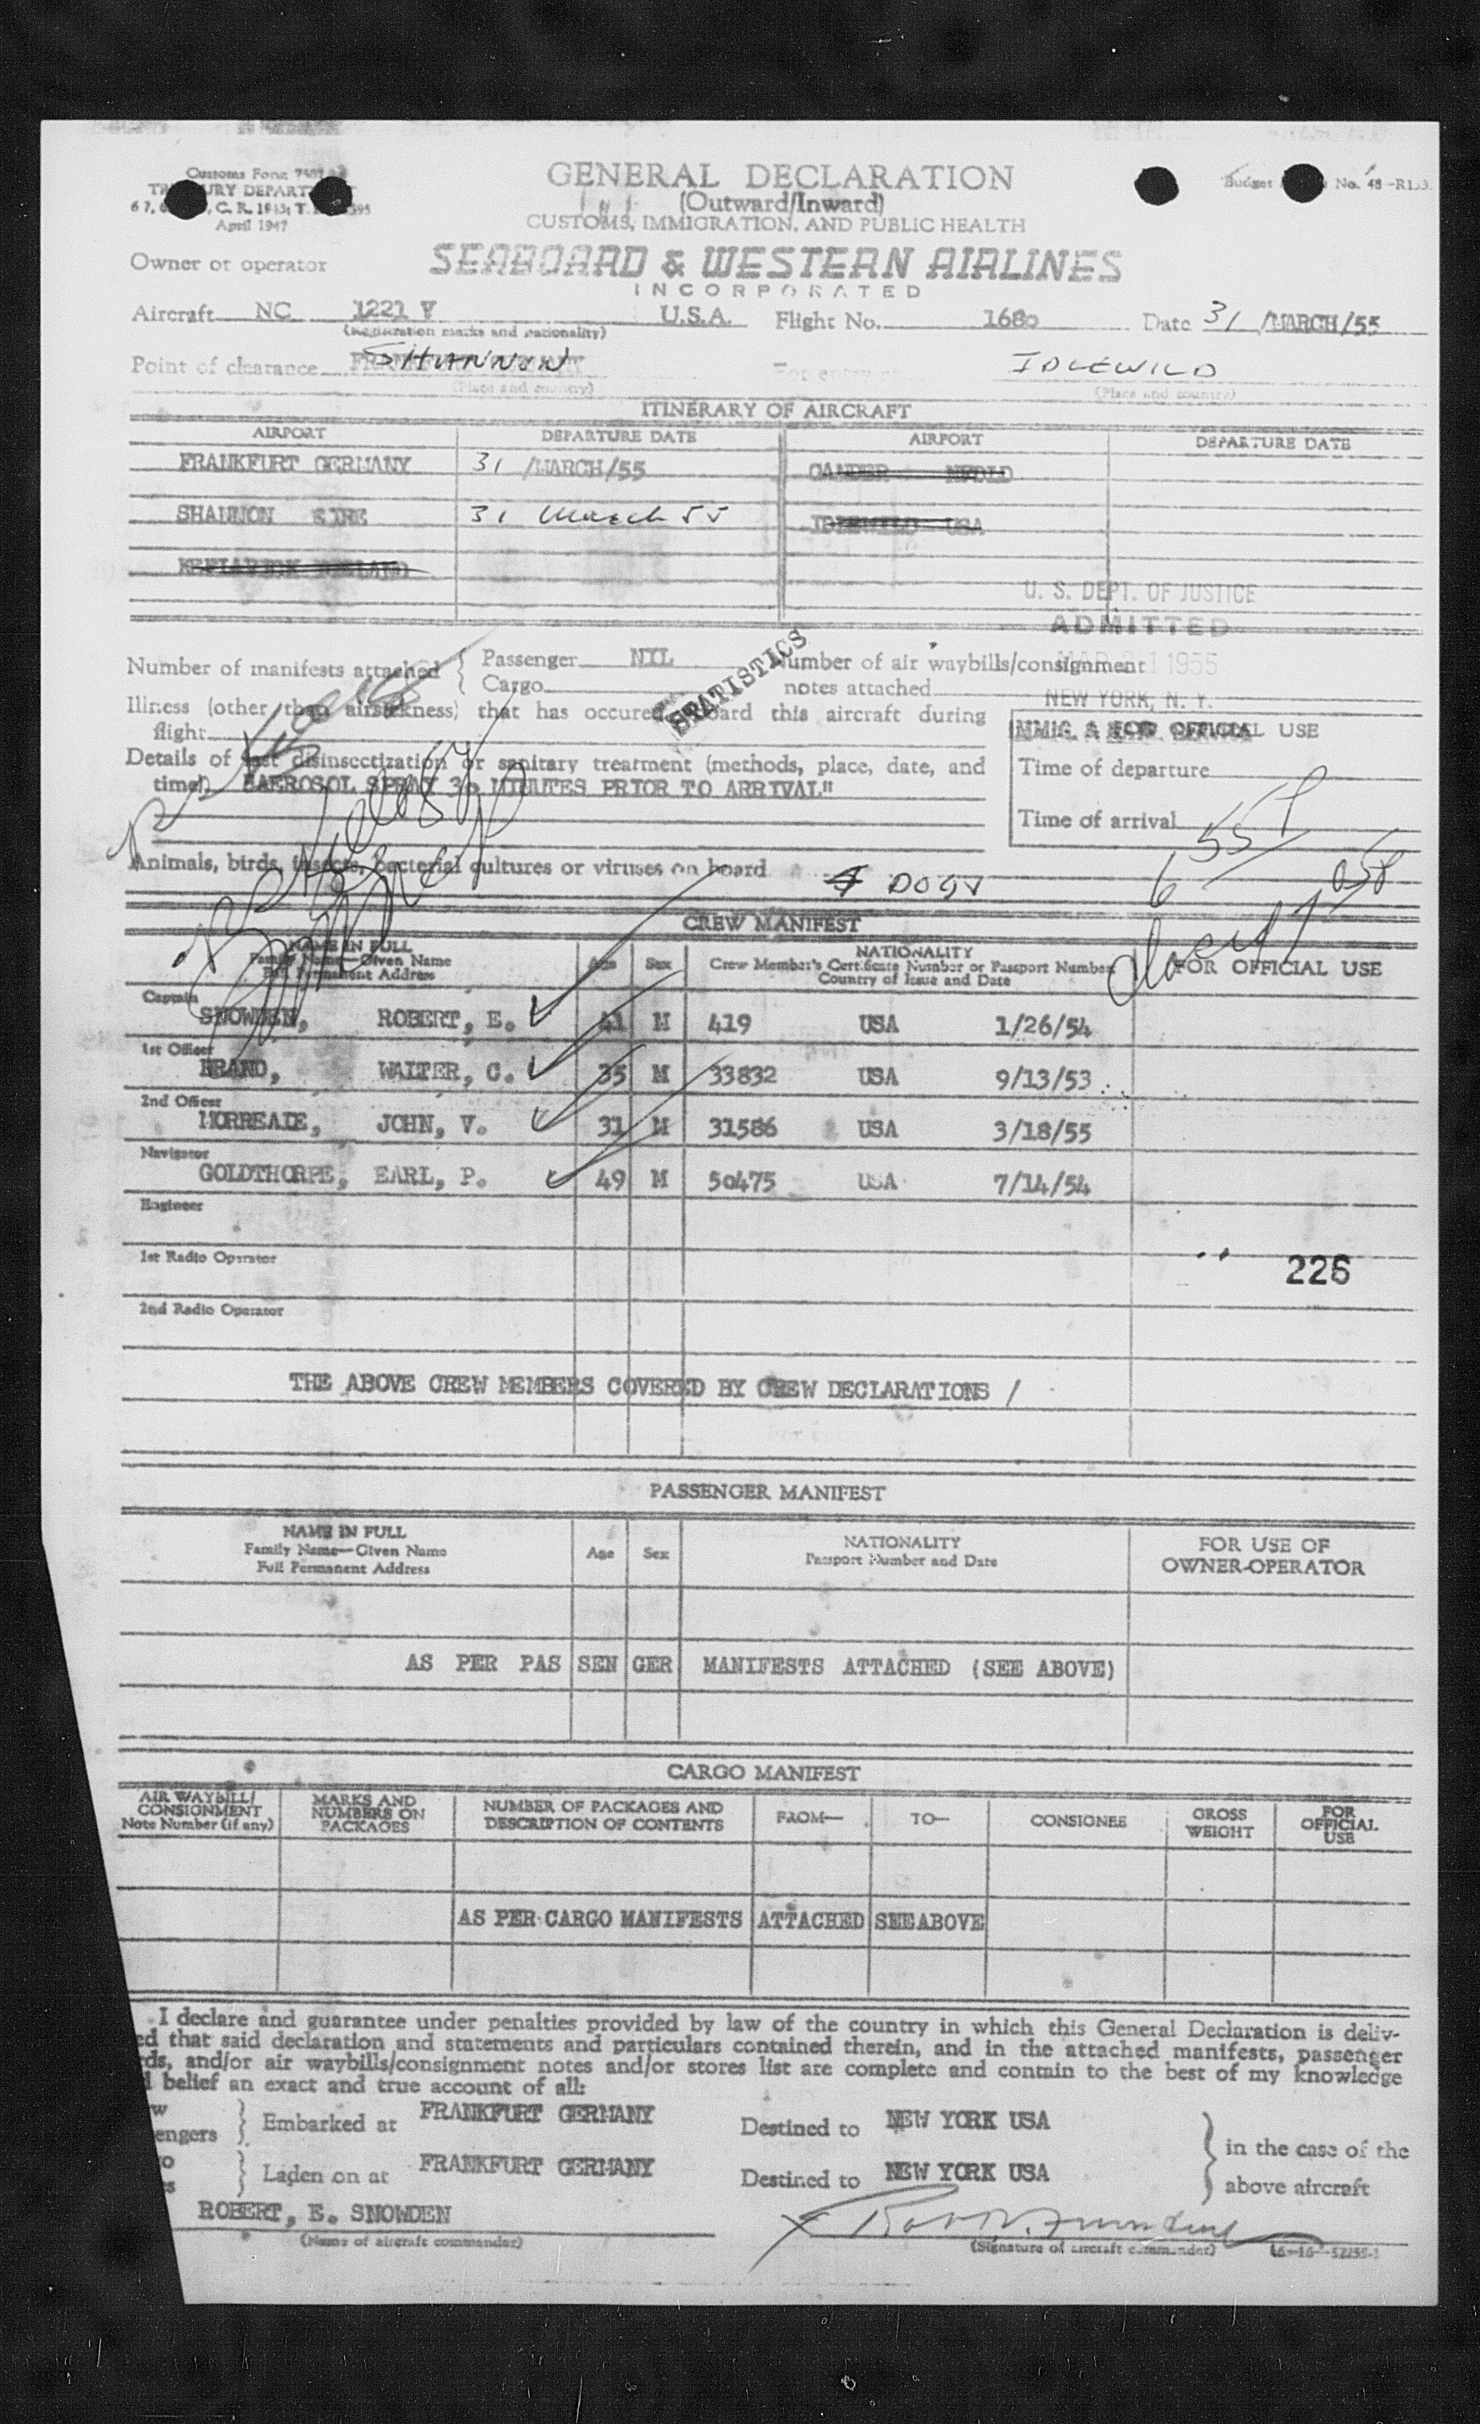 Customs Form 7507
GENERAL DECLARATION
(Outward/Inward)
Budget No. 48-R133.
April 1947
CUSTOMS, IMMIGRATION, AND PUBLIC HEALTH
Owner or operator SEABOARD & WESTERN AIRLINES
INCORPORATED
Aircraft NC 1221 V U.S.A. Flight No. 1680 Date 31 /MARCH/55
(Registration marks and nationality)
Point of clearance SHANNON For entry IDLEWILD
(Place and country) (Place and country)
ITINERARY OF AIRCRAFT
AIRPORT DEPARTURE DATE AIRPORT DEPARTURE DATE
FRANKFURT GERMANY 31 /MARCH/55 GANDER NFDLD
SHANNON EIRE 31 March 55 IDLEWILD USA
U. S. DEPT. OF JUSTICE
ADMITTED
Number of manifests attached { Passenger NIL Number of air waybills/consignment
Cargo notes attached
1955
NEW YORK, N. Y.
STATISTICS
Illness (other than airsickness) that has occured aboard this aircraft during
flight
FOR OFFICIAL USE
Details of last disinsectization or sanitary treatment (methods, place, date, and
time) "AEROSOL SPRAY 30 MINUTES PRIOR TO ARRIVAL"
Time of departure
Time of arrival 655P
Animals, birds, insects, bacterial cultures or viruses on board DOGS
CREW MANIFEST
NAME IN FULL
Family Name—Given Name
Full Permanent Address
Age Sex
NATIONALITY
Crew Member's Certificate Number or Passport Number
Country of Issue and Date
FOR OFFICIAL USE
Captain
SNOWDEN, ROBERT, E. 41 M 419 USA 1/26/54
1st Officer
BRAND, WALTER, C. 35 M 33832 USA 9/13/53
2nd Officer
MORREALE, JOHN, V. 31 M 31586 USA 3/18/55
Navigator
GOLDTHORPE, EARL, P. 49 M 50475 USA 7/14/54
Engineer
1st Radio Operator
226
2nd Radio Operator
THE ABOVE CREW MEMBERS COVERED BY CREW DECLARATIONS /
PASSENGER MANIFEST
NAME IN FULL
Family Name—Given Name
Full Permanent Address
Age Sex
NATIONALITY
Passport Number and Date
FOR USE OF
OWNER-OPERATOR
AS PER PAS SEN GER MANIFESTS ATTACHED (SEE ABOVE)
CARGO MANIFEST
AIR WAYBILL/
CONSIGNMENT
Note Number (if any)
MARKS AND
NUMBERS ON
PACKAGES
NUMBER OF PACKAGES AND
DESCRIPTION OF CONTENTS
FROM— TO— CONSIGNEE
GROSS
WEIGHT
FOR
OFFICIAL
USE
AS PER CARGO MANIFESTS ATTACHED SEE ABOVE
I declare and guarantee under penalties provided by law of the country in which this General Declaration is deliv-
ed that said declaration and statements and particulars contained therein, and in the attached manifests, passenger
ds, and/or air waybills/consignment notes and/or stores list are complete and contain to the best of my knowledge
belief an exact and true account of all:
w
engers } Embarked at FRANKFURT GERMANY Destined to NEW YORK USA
in the case of the
} Laden on at FRANKFURT GERMANY Destined to NEW YORK USA
above aircraft
ROBERT, E. SNOWDEN
(Name of aircraft commander) (Signature of aircraft commander)